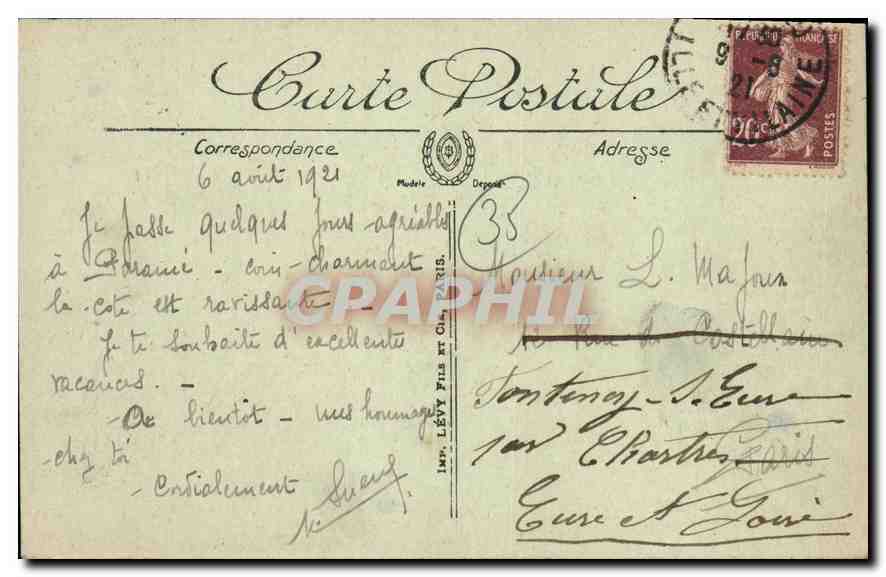 Carte Postale
Correspondance
Adresse
Modèle Déposé
REPUBLIQUE FRANÇAISE
20c
POSTES
ILLE ET VILAINE
9 - 8
21
6 août 1921
Je passe quelques jours agréables
à Paramé - coin charmant
la côte est ravissante -
Je te souhaite d'excellentes
vacances. -
A bientôt - mes hommages
chez toi
Cordialement
IMP. LÉVY FILS ET CIE, PARIS.
35
Monsieur L. Majoux
Rue de Castellane
Fontenay-s-Eure
par Chartres
Paris
Eure et Loire
CPAPHIL